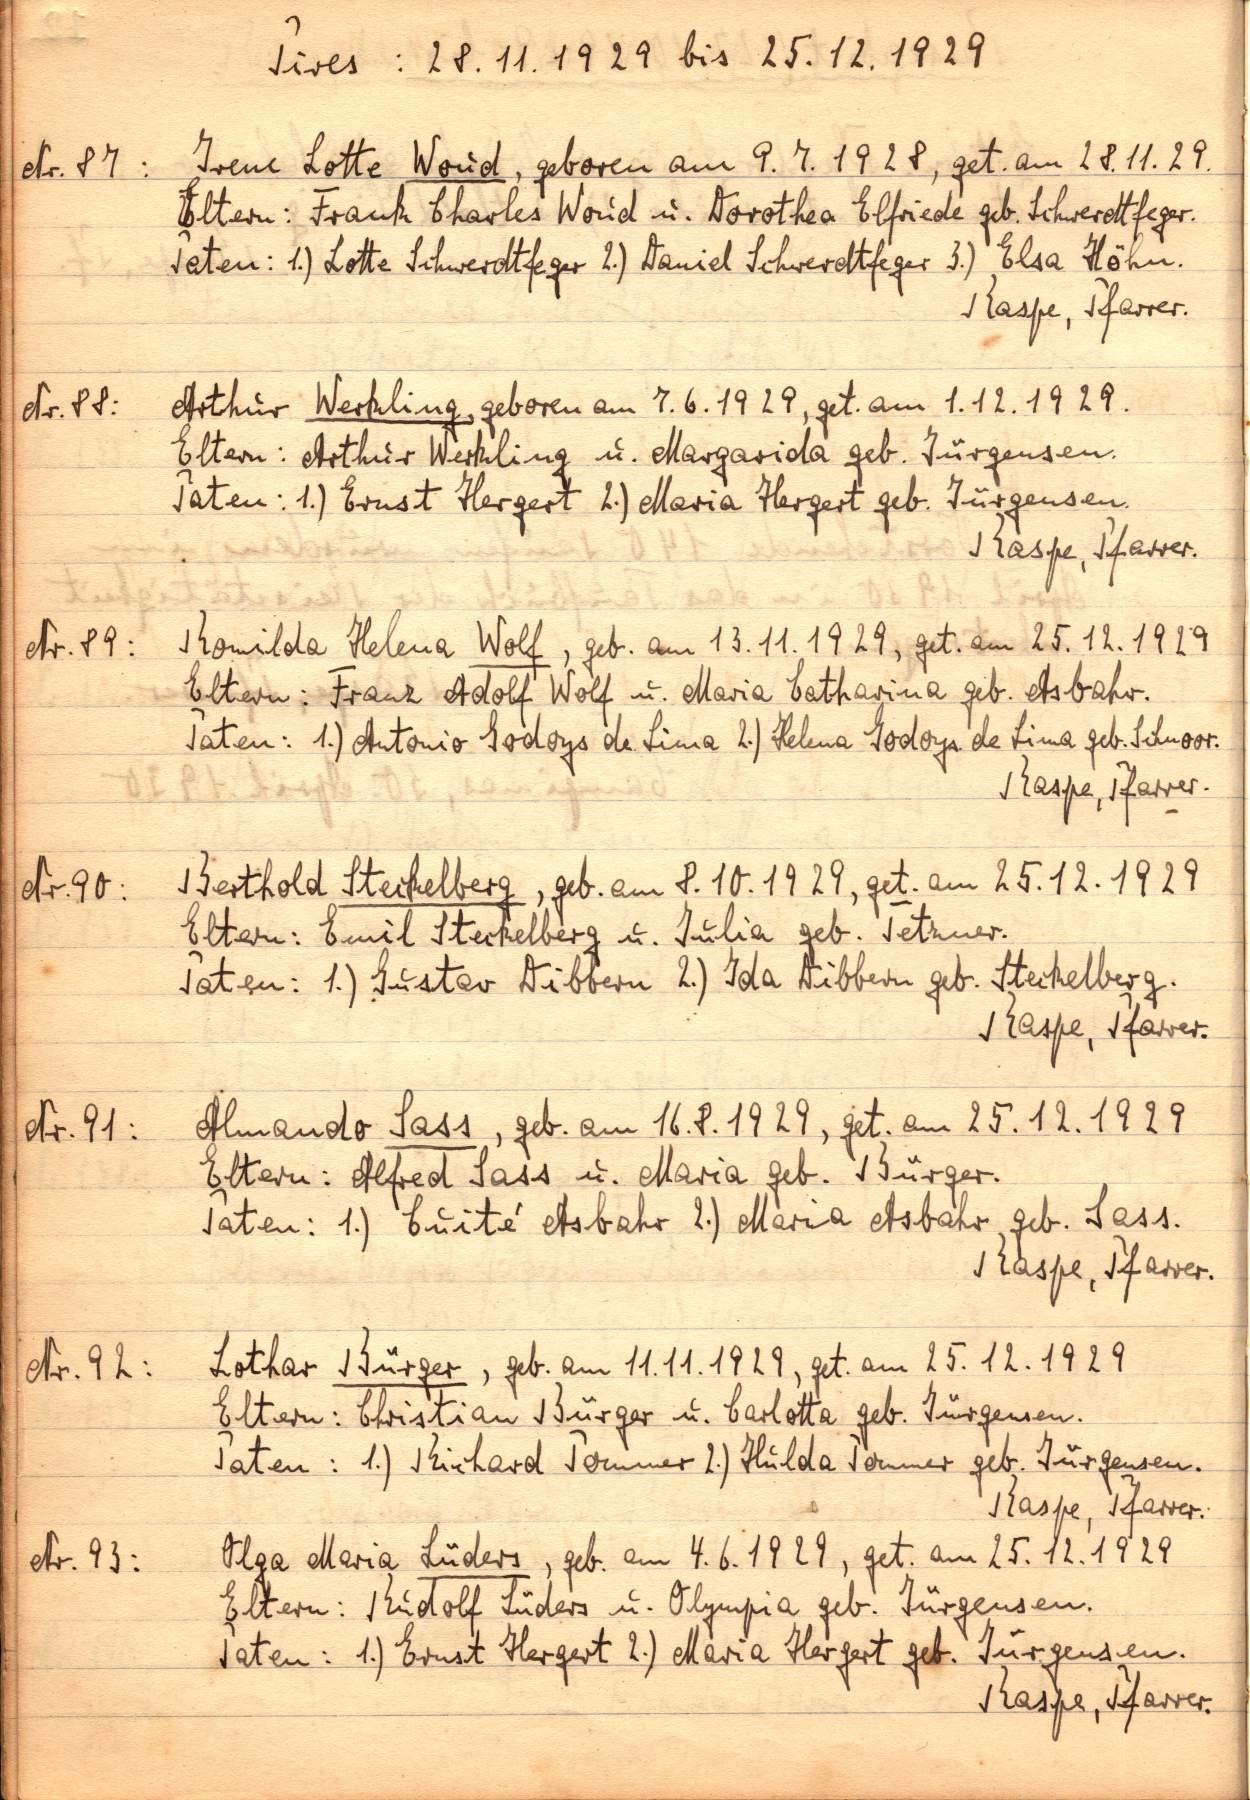 Pires : 28.11.1929 bis 25.12.1929
Nr. 87 : Irene Lotte Woud, geboren am 9.7.1928, get. am 28.11.29.
Eltern: Frank Charles Woud u. Dorothea Elfriede geb. Schwerdtfeger.
Paten: 1.) Lotte Schwerdtfeger 2.) Daniel Schwerdtfeger 3.) Elsa Höhn.
Raspe, Pfarrer.
Nr. 88: Arthur Werkling, geboren am 7.6.1929, get. am 1.12.1929.
Eltern: Arthur Werkling u. Margarida geb. Jürgensen.
Paten: 1.) Ernst Hergert 2.) Maria Hergert geb. Jürgensen.
Raspe, Pfarrer.
Nr. 89: Romilda Helena Wolf, geb. am 13.11.1929, get. am 25.12.1929
Eltern: Franz Adolf Wolf u. Maria Catharina geb. Asbahr.
Paten: 1.) Antonio Godoys de Lima 2.) Helena Godoys de Lima geb. Schnoor.
Raspe, Pfarrer.
Nr. 90: Berthold Steckelberg, geb. am 8.10.1929, get. am 25.12.1929
Eltern: Emil Steckelberg u. Julia geb. Tetzner.
Paten: 1.) Gustav Dibbern 2.) Ida Dibbern geb. Steckelberg.
Raspe, Pfarrer.
Nr. 91: Almando Sass, geb. am 16.8.1929, get. am 25.12.1929
Eltern: Alfred Sass u. Maria geb. Bürger.
Paten: 1.) Cuité Asbahr 2.) Maria Asbahr geb. Sass.
Raspe, Pfarrer.
Nr. 92: Lothar Bürger, geb. am 11.11.1929, get. am 25.12.1929
Eltern: Christian Bürger u. Carlotta geb. Jürgensen.
Paten: 1.) Richard Pommer 2.) Hulda Pommer geb. Jürgensen.
Raspe, Pfarrer.
Nr. 93: Olga Maria Lüders, geb. am 4.6.1929, get. am 25.12.1929
Eltern: Rudolf Lüders u. Olympia geb. Jürgensen.
Paten: 1.) Ernst Hergert 2.) Maria Hergert geb. Jürgensen.
Raspe, Pfarrer.